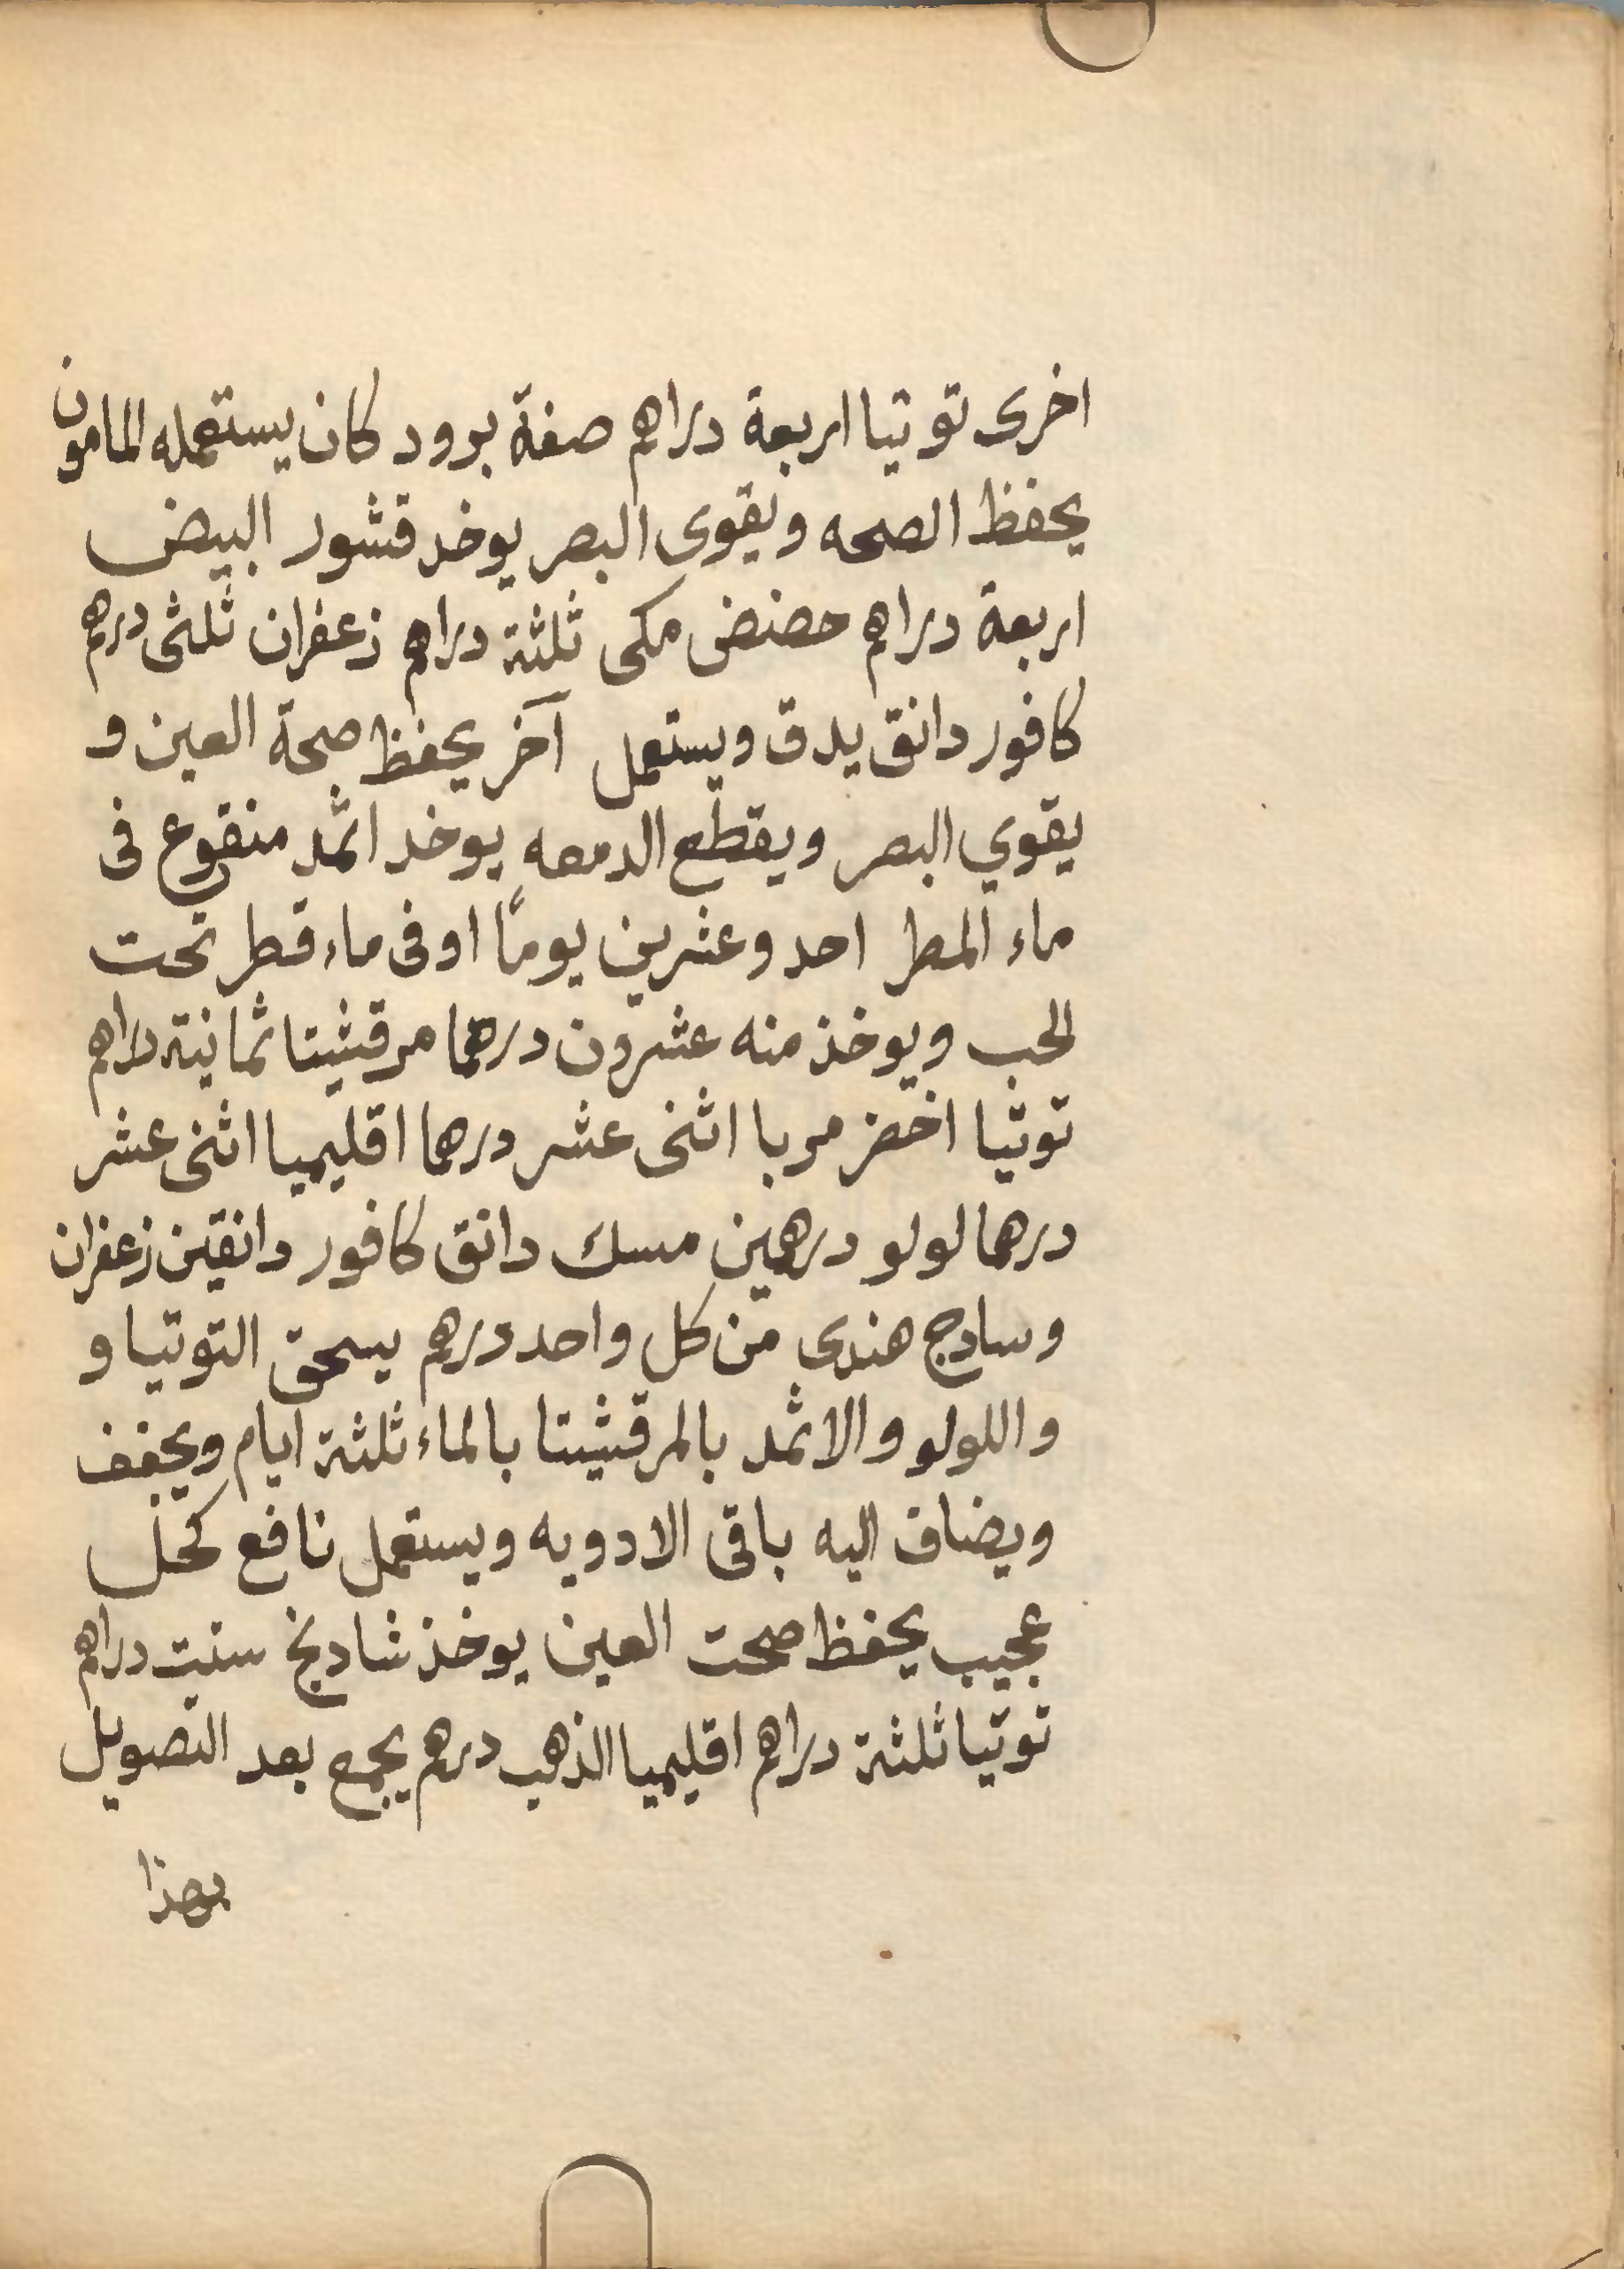 اخرى توتيا اربعة دراهم صفة برود كان يستعمله المامون
يحفظ الصحه ويقوى البصر يوخد قشور البيض
اربعة دراهم حضض مكى ثلثة دراهم زعفران ثلثى درهم
كافور دانق يدق ويستعمل آخر يحفظ صحة العين و
يقوي البصر ويقطع الدمعه يوخد اثمد منقوع فى
ماء المطر احد وعشرين يومًا او فى ماء قطر تحت
الحب ويوخذ منه عشرون درهما مرقشيتا ثمانية دراهم
توتيا اخضر مربا اثنى عشر درهما اقليميا اثنى عشر
درهما لولو درهمين مسك دانق كافور دانقين زعفران
وسادج هندى من كل واحد درهم يسحق التوتيا و
واللولو والاثمد بالمرقشيتا بالماء ثلثة ايام ويجفف
ويضاف اليه باقى الادويه ويستعمل نافع كحل
عجيب يحفظ صحت العين يوخذ شادنج ستت دراهم
توتيا ثلثة دراهم اقليميا الذهب درهم يجمع بعد التصويل
بهذا